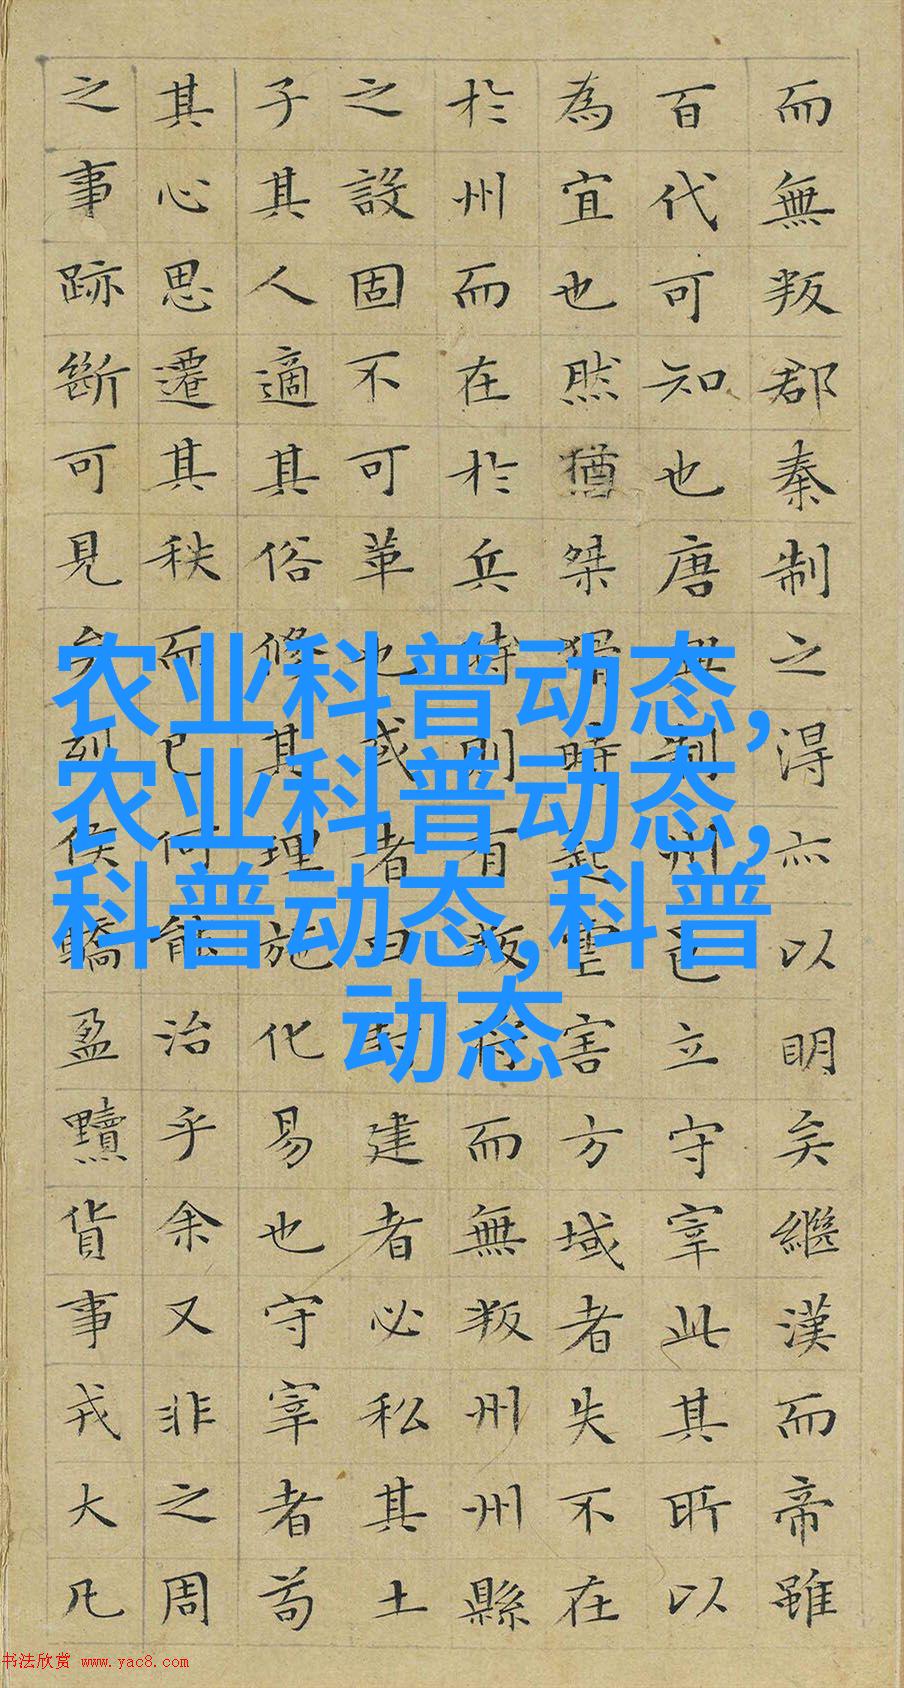 而無叛郡秦制之得亦以明矣繼漢而帝雖
百代可知也唐興制州邑立守宰此其所以
為宜也然猶桀猾時起虐害方域者失不在
於州而在於兵時則有叛將而無叛州州縣
之設固不可革也或者曰封建者必私其土
子其人適其俗修其理施化易也守宰者苟
其心思遷其秩而已何能治乎余又非之周
之事跡斷可見矣列侯驕盈黷貨事戎大凡
农业科普动态,
农业科普动态,
科普动态,科普
动态
书法欣赏 www.yac8.com